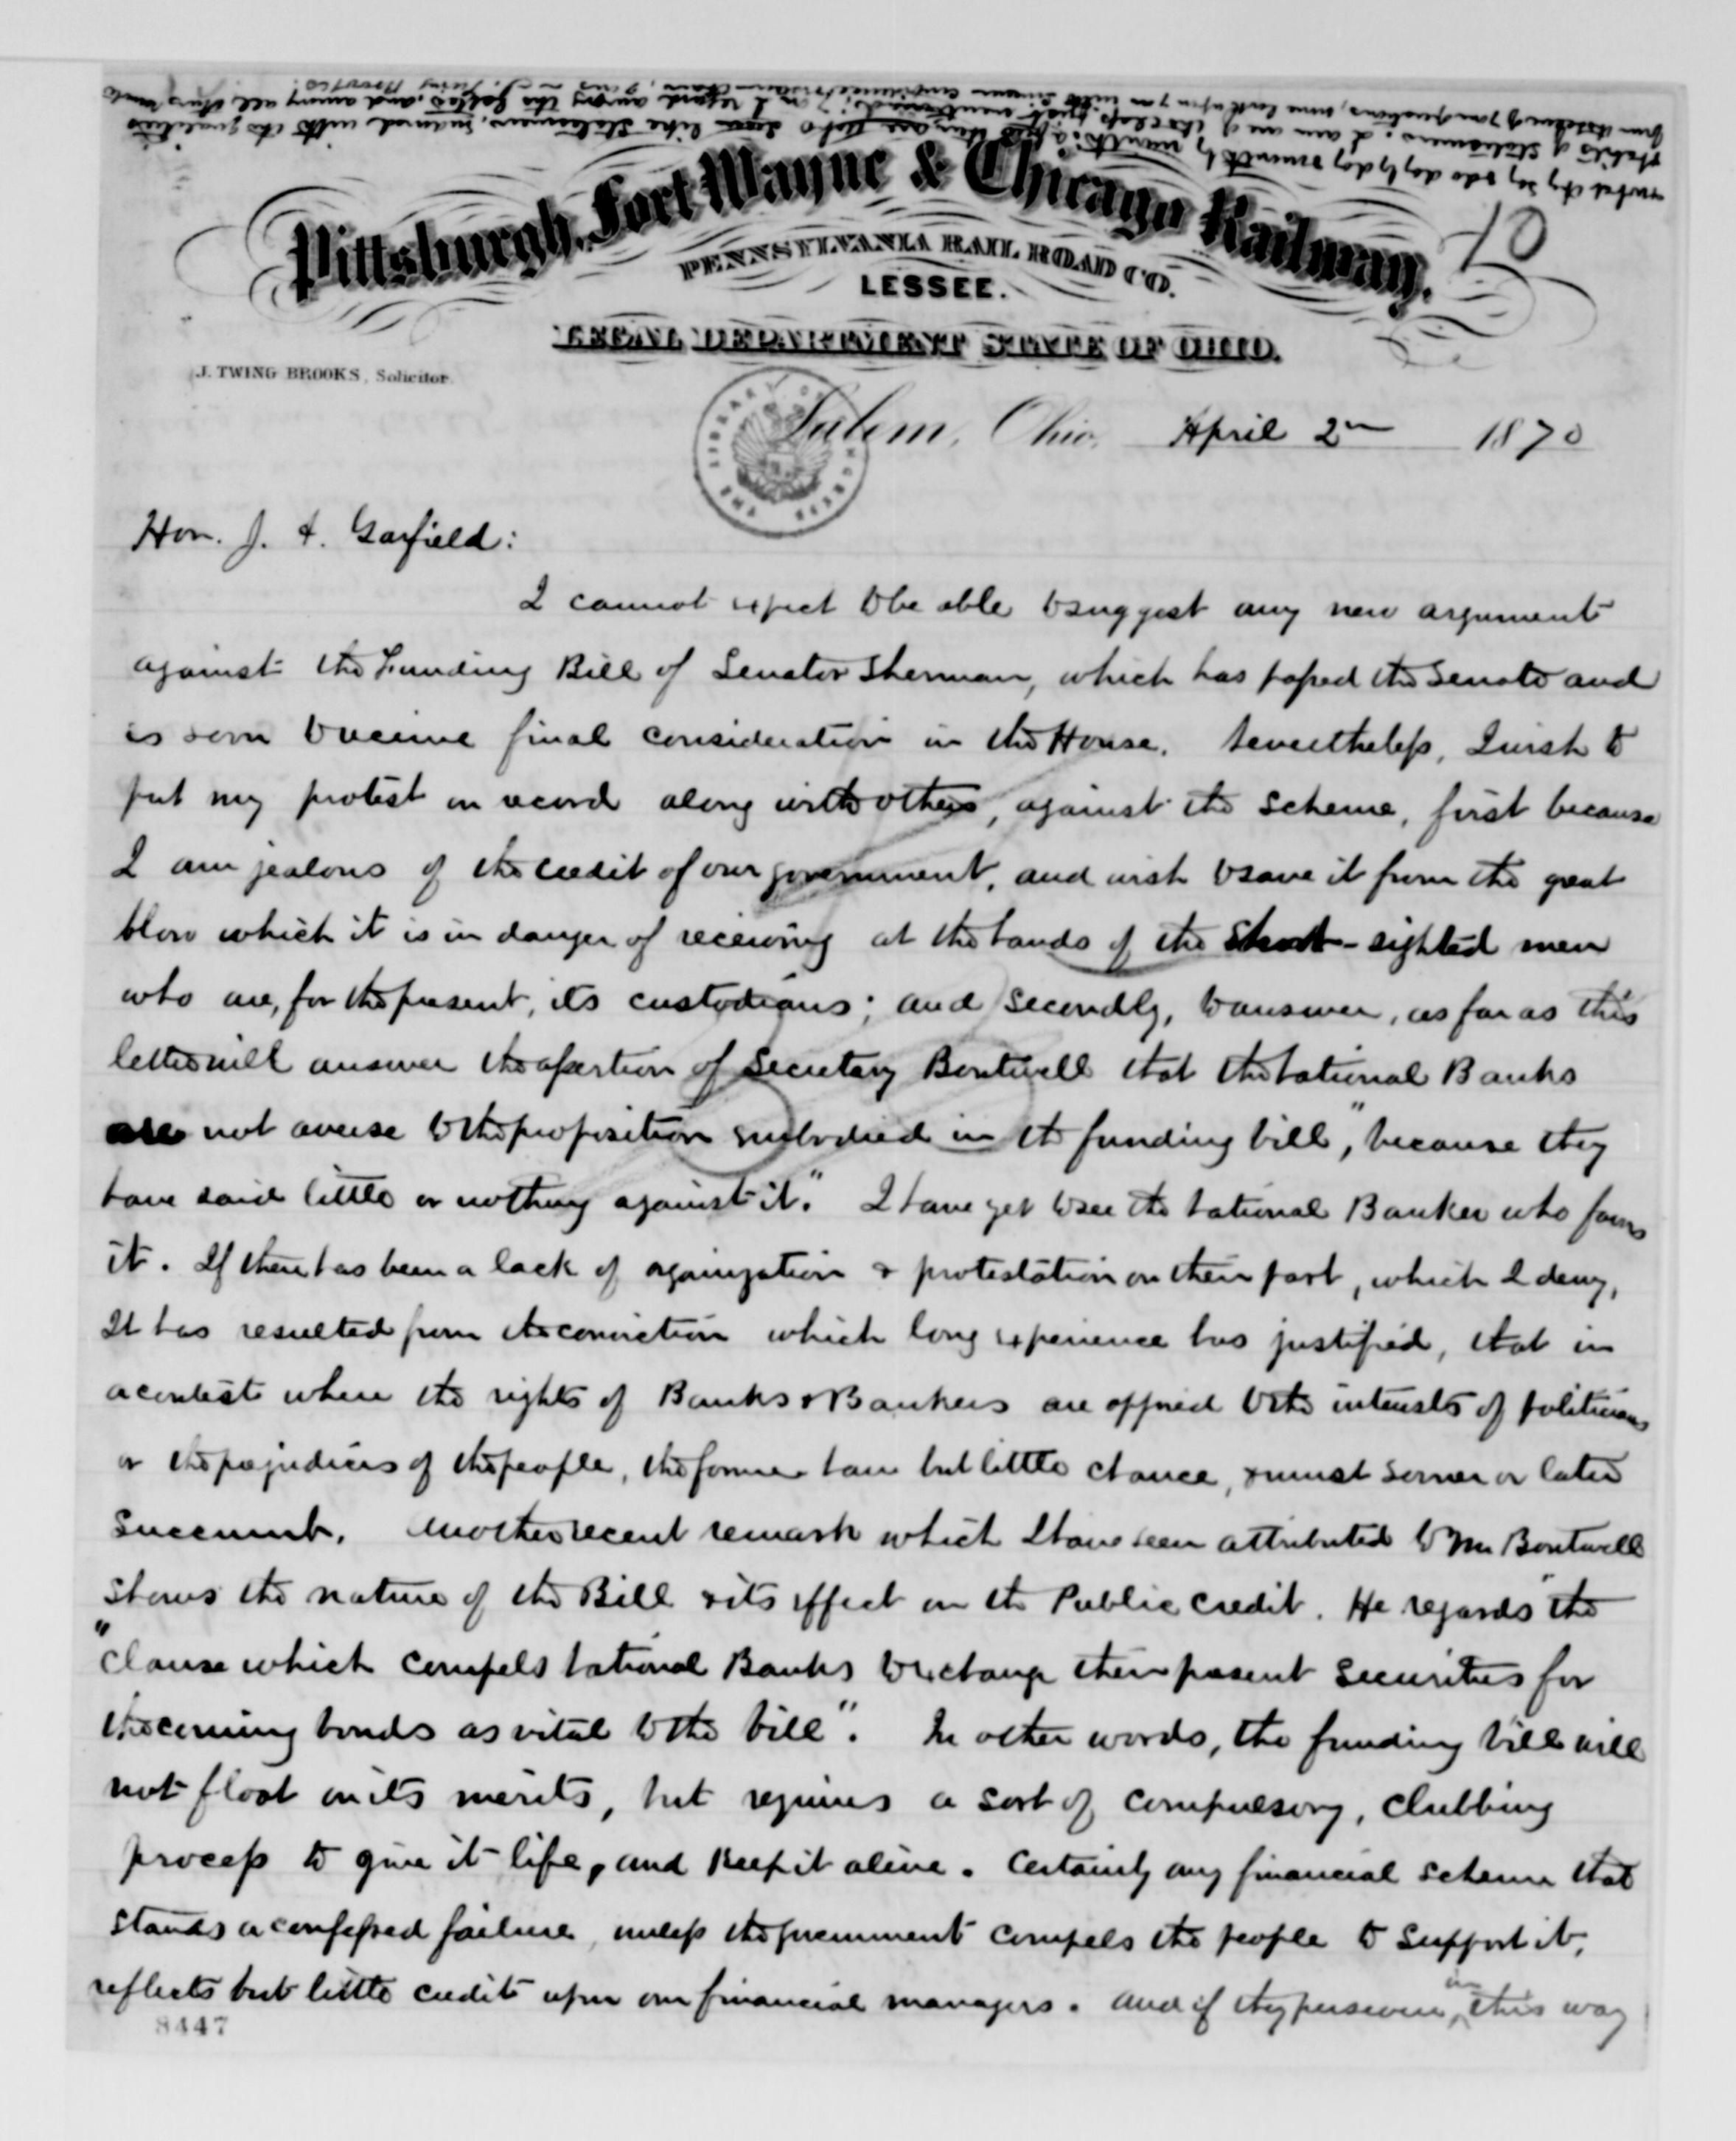 Pittsburgh, Fort Wayne & Chicago Railway.
70
PENNSYLVANIA RAIL ROAD CO.
LESSEE.
LEGAL DEPARTMENT STATE OF OHIO.
J. TWING BROOKS, Solicitor
Salem, Ohio, April 2nd 1870
Hon. J. A. Garfield:
I cannot expect to be able to suggest any new argument
against the Funding Bill of Senator Sherman, which has passed the Senate and
is soon to receive final consideration in the House. Nevertheless, I wish to
put my protest on record along with others, against the scheme, first because
I am jealous of the credit of our government, and wish to save it from the great
blow which it is in danger of receiving at the hands of the short-sighted men
who are, for the present, its custodians; and secondly, to answer, as far as this
letter will answer the assertion of Secretary Boutwell that the National Banks
are not averse to the proposition embodied in the funding bill, "because they
have said little or nothing against it." I have yet to see the National Banker who favors
it. If there has been a lack of organization & protestation on their part, which I deny,
It has resulted from the conviction which long experience has justified, that in
a contest where the rights of Banks & Bankers are opposed to the interests of politicians
or the prejudices of the people, the former have but little chance, & must sooner or later
succumb. Another recent remark which I have seen attributed to Mr Boutwell
shows the nature of the Bill & its effect on the Public credit. He regards "the
"clause which compels National Banks to exchange their present securities for
the coming bonds as vital to the bill". In other words, the funding bill will
not float on its merits, but requires a sort of compulsory, clubbing
process to give it life, and keep it alive. Certainly any financial scheme that
stands a confessed failure, unless the government compels the people to support it,
reflects but little credit upon our financial managers. And if they persevere in this way
8447